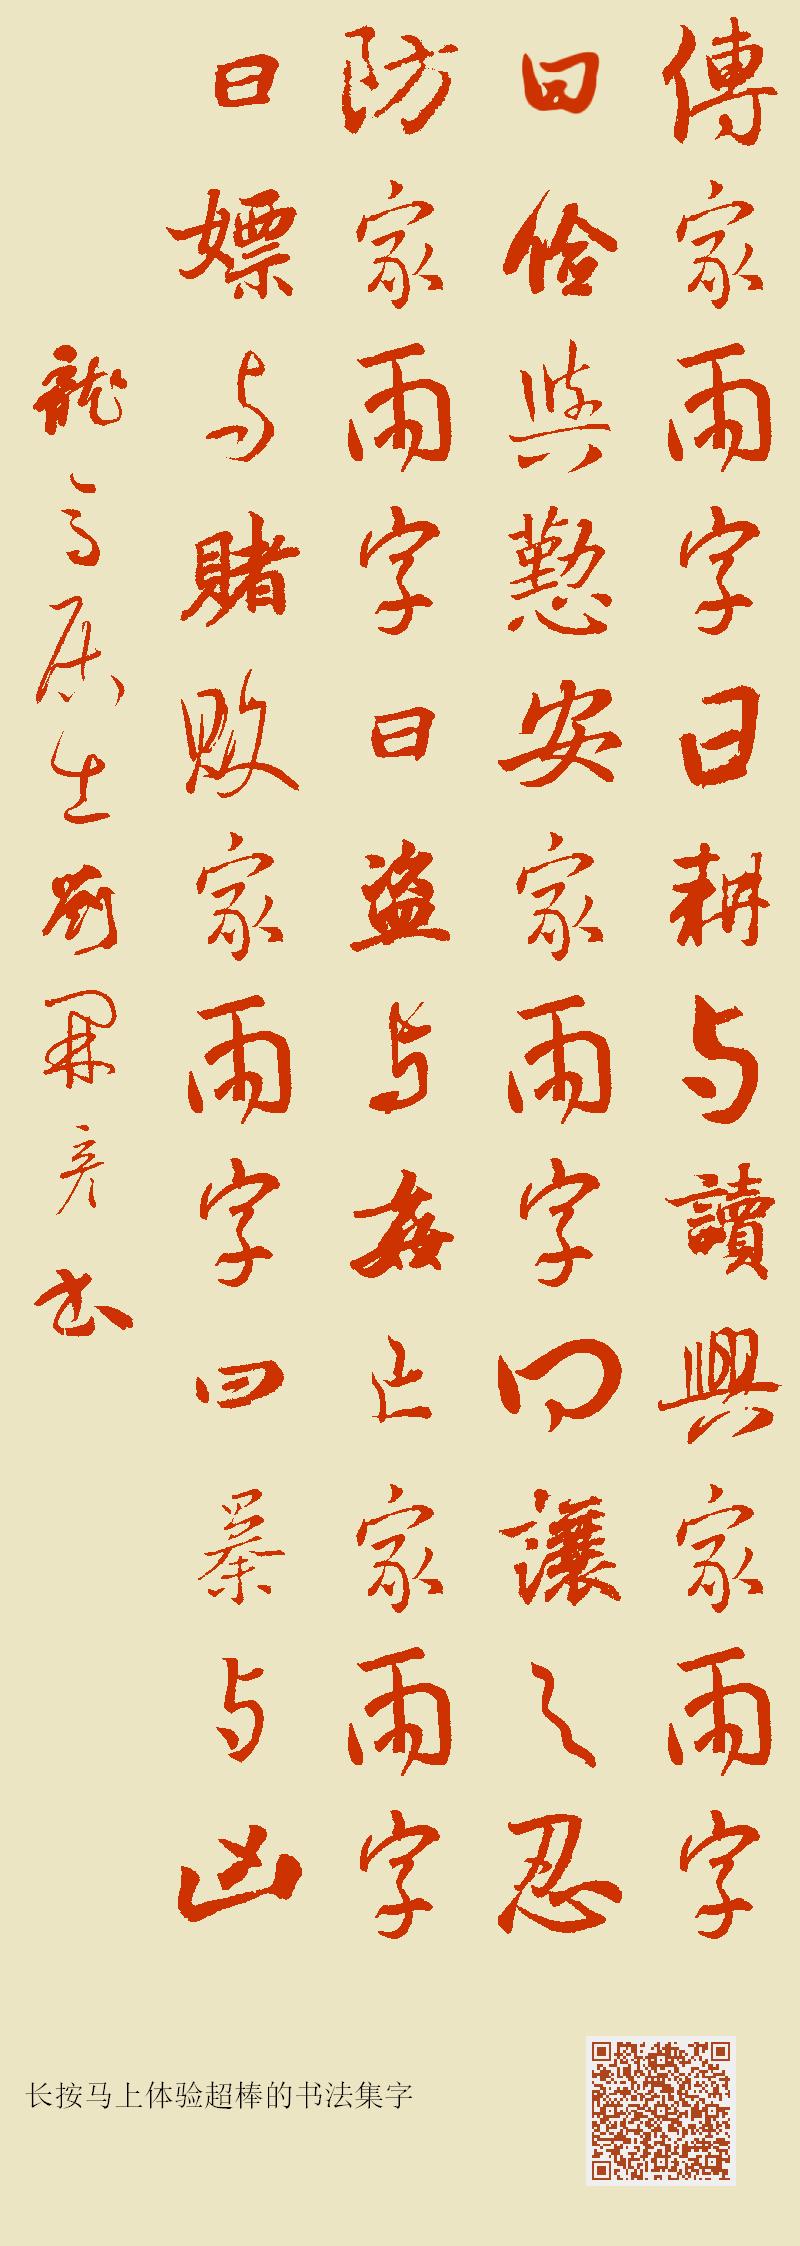 傳家兩字曰耕与讀興家兩字
曰儉與懃安家兩字曰讓之忍
防家兩字曰盜与姦亡家兩字
曰嫖与賭敗家兩字曰暴与凶
龍居生劉開彦书
长按马上体验超棒的书法集字